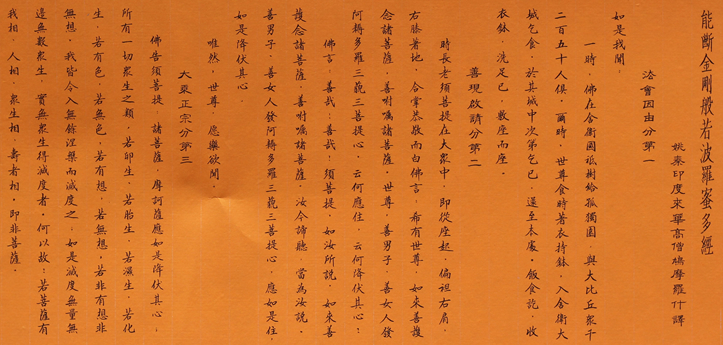 能斷金剛般若波羅蜜多經
姚秦印度來華高僧鳩摩羅什譯
法會因由分第一
如是我聞。
一時，佛在舍衛國祇樹給孤獨園，與大比丘眾千
二百五十人俱。爾時，世尊食時著衣持鉢，入舍衛大
城乞食。於其城中次第乞已，還至本處。飯食訖，收
衣鉢，洗足已，敷座而座。
善現啟請分第二
時長老須菩提在大眾中，即從座起，偏袒右肩，
右膝著地，合掌恭敬而白佛言：希有世尊，如來善護
念諸菩薩，善咐囑諸菩薩。世尊，善男子、善女人發
阿耨多羅三藐三菩提心，云何應住，云何降伏其心？
佛言：善哉！善哉！須菩提，如汝所說，如來善
護念諸菩薩，善咐囑諸菩薩，汝今諦聽，當為汝說，
善男子、善女人發阿耨多羅三藐三菩提心，應如是住，
如是降伏其心。
唯然，世尊，願樂欲聞。
大乘正宗分第三
佛告須菩提，諸菩薩，摩訶薩應如是降伏其心，
所有一切眾生之類，若卵生，若胎生，若濕生，若化
生，若有色，若無色，若有想，若無想，若非有想非
無想，我皆令入無餘涅槃而滅度之，如是滅度無量無
邊無數眾生，實無眾生得滅度者。何以故？若菩薩有
我相、人相、眾生相、壽者相，即非菩薩。